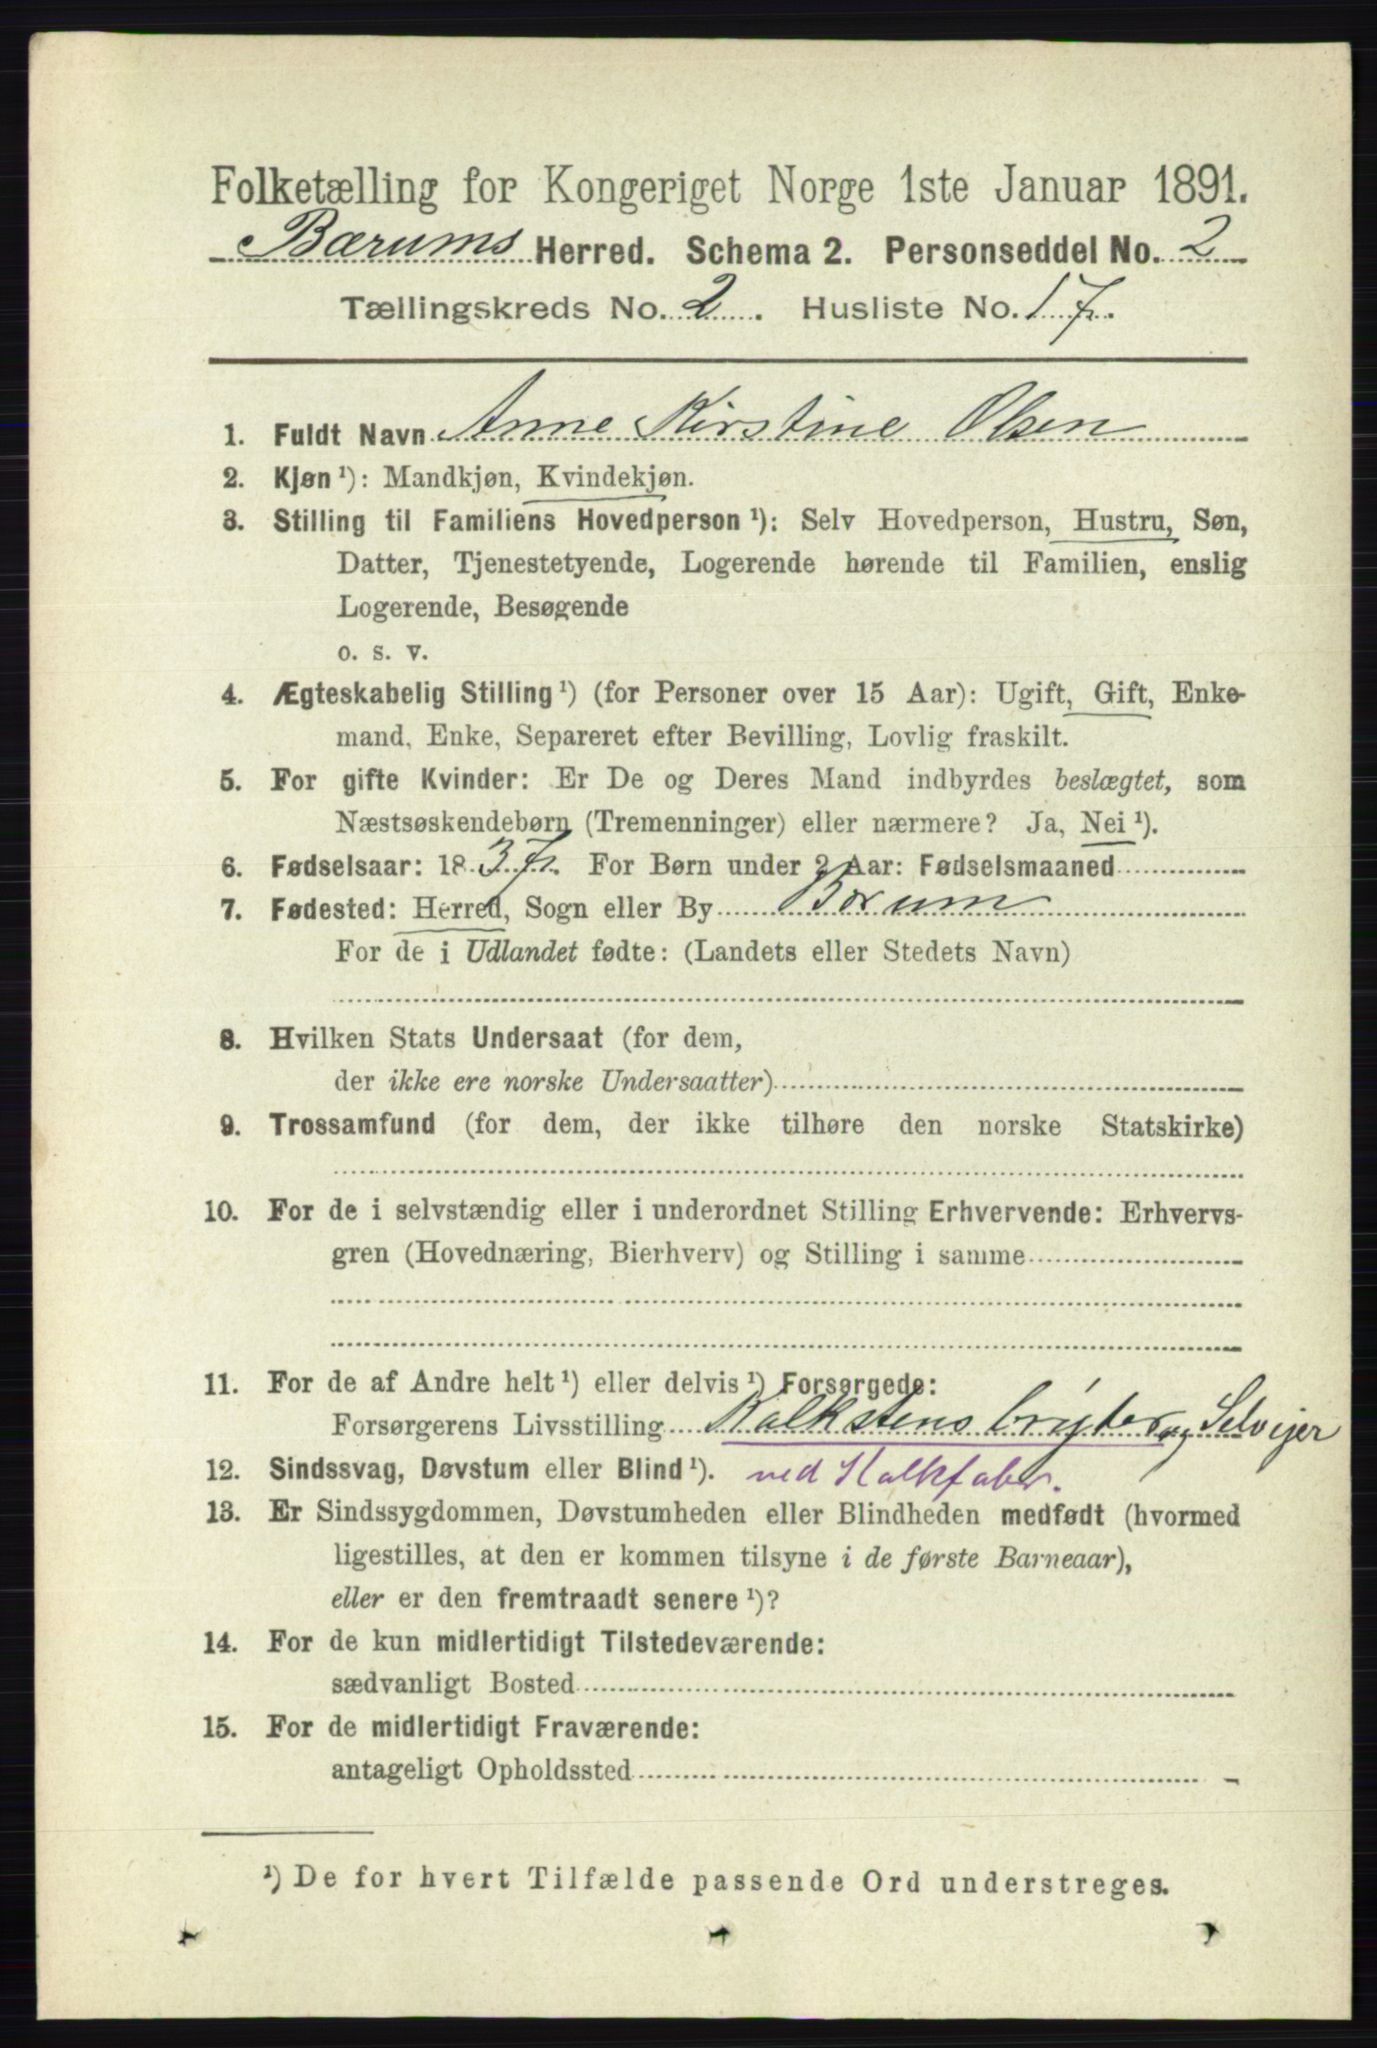 Folketælling for Kongeriget Norge 1ste Januar 1891.
Bærums Herred. Schema 2. Personseddel No. 2
Tællingskreds No. 2. Husliste No. 17.
1. Fuldt Navn Anne Kirstine Olsen
2. Kjøn ¹): Mandkjøn, Kvindekjøn.
3. Stilling til Familiens Hovedperson ¹): Selv Hovedperson, Hustru, Søn,
Datter, Tjenestetyende, Logerende hørende til Familien, enslig
Logerende, Besøgende
o. s. v.
4. Ægteskabelig Stilling ¹) (for Personer over 15 Aar): Ugift, Gift, Enke-
mand, Enke, Separeret efter Bevilling, Lovlig fraskilt.
5. For gifte Kvinder: Er De og Deres Mand indbyrdes beslægtet, som
Næstsøskendebørn (Tremenninger) eller nærmere? Ja, Nei ¹).
6. Fødselsaar: 1837. For Børn under 2 Aar: Fødselsmaaned
7. Fødested: Herred, Sogn eller By Bærum
For de i Udlandet fødte: (Landets eller Stedets Navn)
8. Hvilken Stats Undersaat (for dem,
der ikke ere norske Undersaatter)
9. Trossamfund (for dem, der ikke tilhøre den norske Statskirke)
10. For de i selvstændig eller i underordnet Stilling Erhvervende: Erhvervs-
gren (Hovednæring, Bierhverv) og Stilling i samme
11. For de af Andre helt ¹) eller delvis ¹) Forsørgede:
Forsørgerens Livsstilling Kalkstens bryter og Selvejer
12. Sindssvag, Døvstum eller Blind ¹). ved Kalkfabr.
13. Er Sindssygdommen, Døvstumheden eller Blindheden medfødt (hvormed
ligestilles, at den er kommen tilsyne i de første Barneaar),
eller er den fremtraadt senere ¹)?
14. For de kun midlertidigt Tilstedeværende:
sædvanligt Bosted
15. For de midlertidigt Fraværende:
antageligt Opholdssted
¹) De for hvert Tilfælde passende Ord understreges.